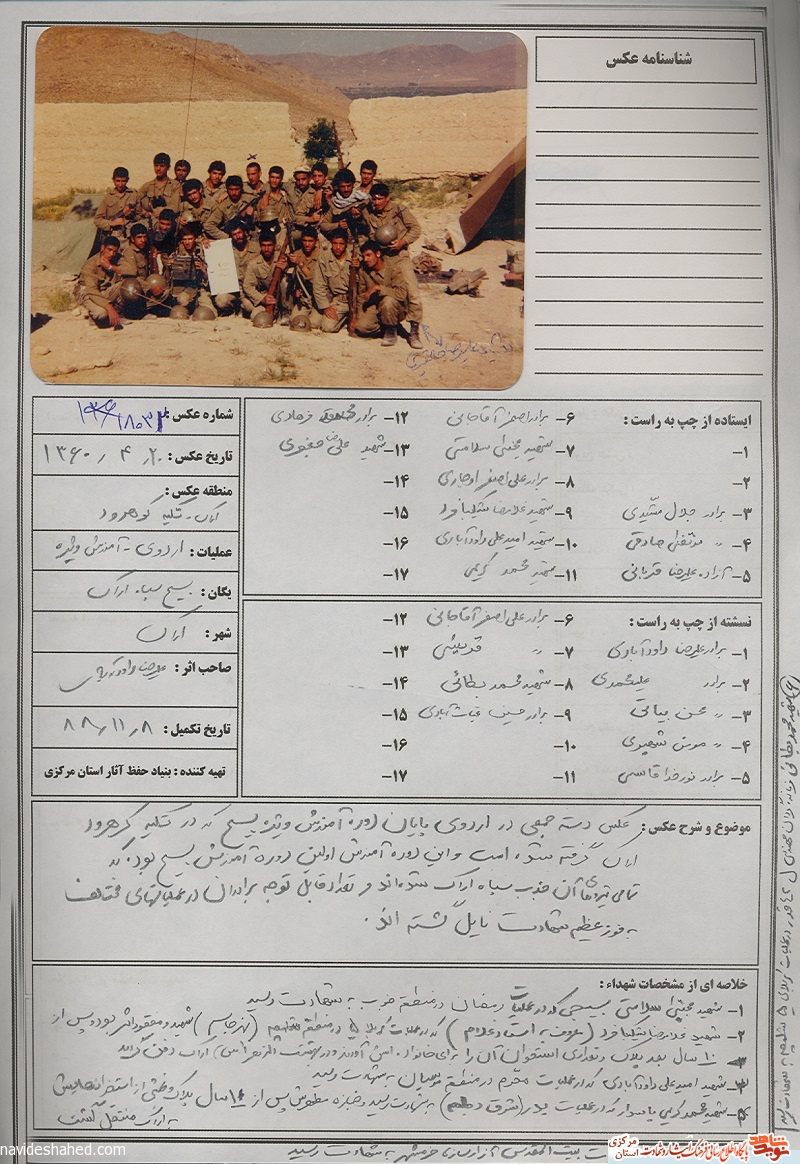 شناسنامه عکس
ایستاده از چپ به راست :
۱-
۲-
۳- برادر جلال مشیدی
۴- " مرتضی صادقی
۵- آزاده علیرضا قربانی
۶- برادر اصغر آقاجانی
۷- شهید مجتبی سلامتی
۸- برادر علی اصغر اوجاری
۹- شهید غلامرضا شکیبافرد
۱۰- شهید امیدعلی داودآبادی
۱۱- شهید محمد کریمی
۱۲- برادر محمود فرهادی
۱۳- شهید علیرضا صفوی
۱۴-
۱۵-
۱۶-
۱۷-
شماره عکس :
تاریخ عکس : ۱۳۶۰/۴/۲۰
منطقه عکس :
اراک - تکیه کوهرود
عملیات : اردوی - آموزش ویژه
یگان : بسیج سپاه اراک
شهر : اراک
صاحب اثر : علیرضا داودآبادی
تاریخ تکمیل : ۸۸/۱۱/۸
تهیه کننده : بنیاد حفظ آثار استان مرکزی
نشسته از چپ به راست :
۱- برادر علیرضا داودآبادی
۲- برادر علیمحمدی
۳- " محسن بیاتی
۴- " موسی شهیدی
۵- برادر نورخدا قاسمی
۶- برادر علی اصغر آقاجانی
۷- "
۸- شهید محمد بطائی
۹- برادر حسین غیاث آبادی
۱۰-
۱۱-
۱۲-
۱۳-
۱۴-
۱۵-
۱۶-
۱۷-
موضوع و شرح عکس : عکس دسته جمعی در اردوی پایان دوره آموزش ویژه بسیج که در تکیه کرهرود
اراک گرفته شده است و این دوره آموزش اولین دوره آموزش بسیج بود که
تمامی نیروهای آن جذب سپاه اراک شده‌اند و تعداد قابل توجه برادران در عملیاتهای مختلف
به فوز عظیم شهادت نایل گشته اند.
خلاصه ای از مشخصات شهداء :
۱- شهید مجتبی سلامتی بسیجی که در عملیات رمضان در منطقه جنوب به شهادت رسید
۲- شهید غلامرضا شکیبافرد (معروف به استاد غلام) که در عملیات کربلای ۵ در منطقه شلمچه (نهر جاسم) شهید و مفقودالاثر بود و پس از
۱۰ سال بعد پلاک و تعدادی استخوان آن را برای خانواده اش آوردند و در بهشت الزهرا اراک دفن گردید
۳- شهید امیدعلی داودآبادی که در عملیات محرم در منطقه موسیان به شهادت رسید
۴- شهید محمد کریمی پاسدار که در عملیات بدر (شرق دجله) به شهادت رسید و جنازه مطهرش پس از سال
به اراک منتقل گشت
بیت المقدس آزادسازی خرمشهر به شهادت رسید
navideshahed.com
نوید شاهد
پایگاه اطلاع رسانی فرهنگ ایثار و شهادت
استان مرکزی